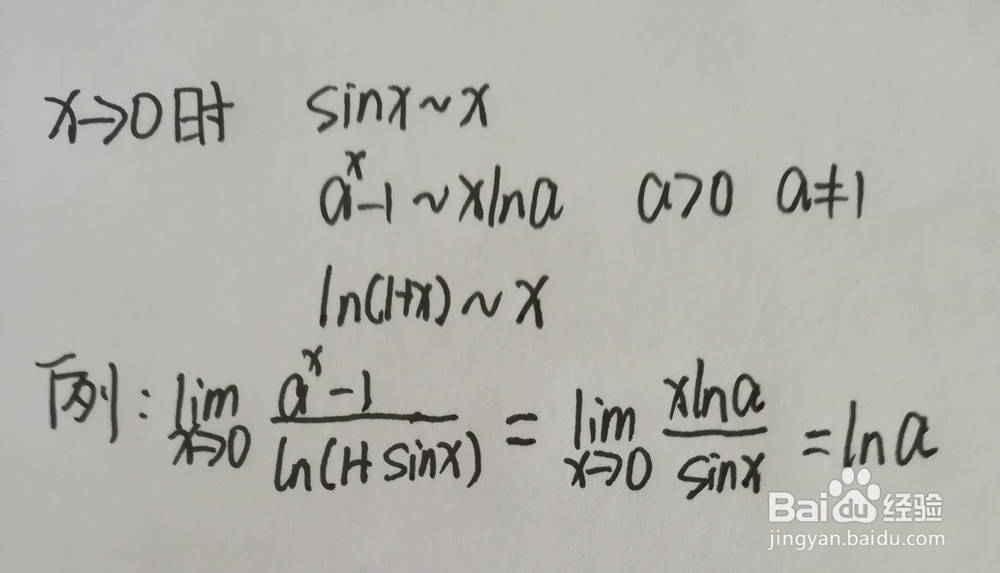 x→0时 sinx~x
aˣ-1~xlna a>0 a≠1
ln(1+x)~x
例: lim x→0 (aˣ-1)/(ln(1+sinx)) = lim x→0 (xlna)/(sinx) = lna
Baidu经验
jingyan.baidu.com